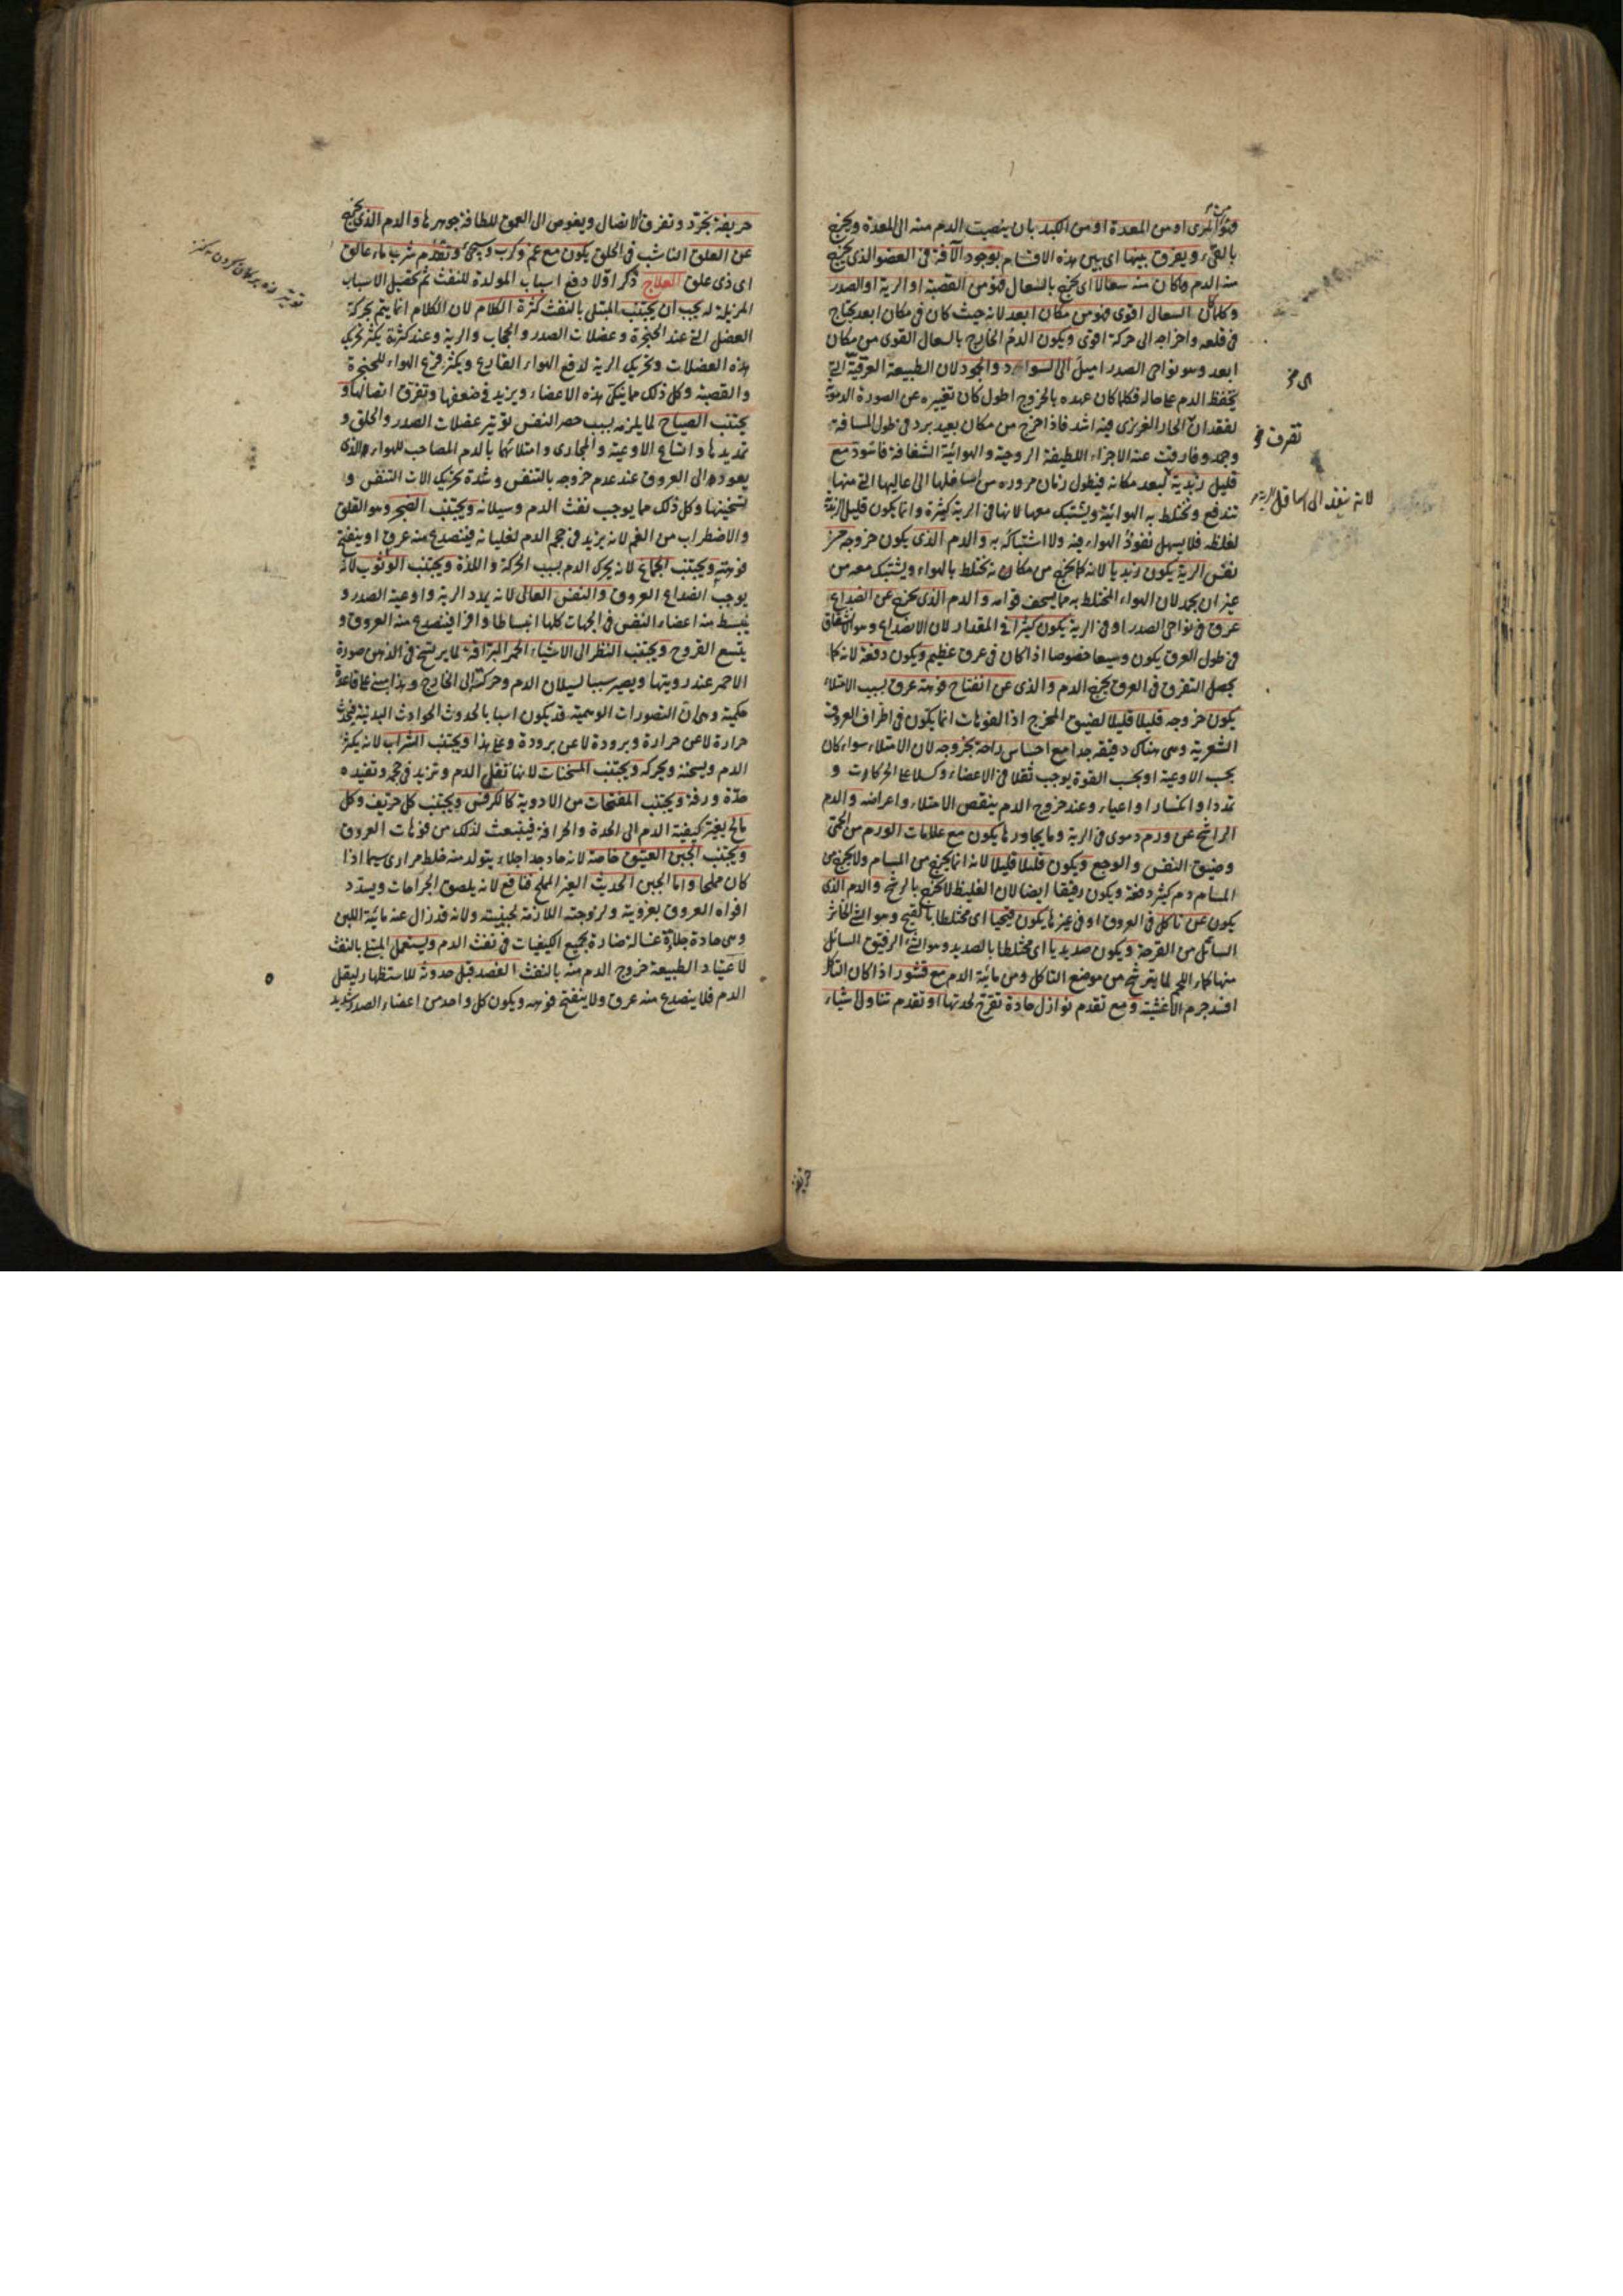 فهو من المرى او من المعدة او من الكبد بان ينصب الدم منه الى المعدة ويخرج
بالقىء ويفرق بينها اى بين هذه الاقسام بوجود الآفة فى العضو الذى يخرج
منه الدم وما كان منه سعالا اى يخرج بالسعال فهو من القصبة او الرية او الصدر
وكلما كان السعال اقوى فهو من مكان ابعد لانه حيث كان فى مكان ابعد يحتاج
فى قلعه واخراجه الى حركة اقوى ويكون الدم الخارج بالسعال القوى من مكان
ابعد وهو نواحى الصدر اميل الى السواد والجمود لان الطبيعة العرقية التى
يحفظ الدم على حاله فكلما كان عهده بالخروج اطول كان تغييره عن الصورة الدموية
لفقدان الحار الغريزى فيه اشد فاذا خرج من مكان بعيد برد فى طول المسافة
وجمد وفارقت عنه الاجزاء اللطيفة الروحية والهوائية الشفافة فاسود مع
قليل زبدية لبعد مكانه فيطول زمان مروره من اسافلها الى عاليها التى منها
تندفع وتختلط به الهوائية ويشتبك معها لانها فى الرية كثيرة وانما يكون قليل الزبدية
لغلظه فلا يسهل نفوذ الهواء فيه ولا اشتباكه به والدم الذى يكون خروجه من
نفس الرية يكون زبديا لانه كما يخرج من مكانه يختلط بالهواء ويشتبك معه من
غير ان يجمد لان الهواء المختلط به مما يسخف قوامه والدم الذى يخرج عن انصداع
عرق فى نواحى الصدر او فى الرية يكون كثيرا فى المقدار لان الانصداع وهو انشقاق
فى طول العرق يكون وسيعا خصوصا اذا كان فى عرق عظيم ويكون دفعة لانه كما
يحصل التفرق فى العرق يخرج الدم والذى عن انفتاح فوهة عرق بسبب الامتلاء
يكون خروجه قليلا قليلا لضيق المخرج اذ الفوهات انما يكون فى اطراف العروق
الشعرية وهى هناك دقيقة جدا مع احساس راحة بخروجه لان الامتلاء سواء كان
بحسب الاوعية او بحسب القوة يوجب ثقلا فى الاعضاء وكسلا عن الحركات و
تمددا وانكسارا واعياء وعند خروج الدم ينقص الامتلاء واعراضه والدم
الراشح عن ورم دموى فى الرية وما يجاورها يكون مع علامات الورم من الحمى
وضيق النفس والوجع ويكون قليلا قليلا لانه انما يخرج من المسام ولا يخرج من
المسام دم كثير دفعة ويكون رقيقا ايضا لان الغليظ لا يخرج بالرشح والدم الذى
يكون عن تاكل فى العروق او فى غيرها يكون قيحيا اى مختلطا بالقيح وهو الشىء الخاثر
السائل من القرحة ويكون صديديا اى مختلطا بالصديد وهو الشىء الرقيق السائل
منها كماء اللحم لما يترشح من موضع التاكل ومن مائية الدم مع قشور اذا كان التاكل
افسد جرم الاغشية ومع تقدم نوازل حادة تقرح لحدتها او تقدم تناول اشياء
اى فى
تصرف فى
لانه ينفذ الى اسافل الرية
حريفة
حريفة تجرد وتفرق الاتصال ويغوص الى العمق للطافة جوهرها والدم الذى يخرج
عن العلق الناشب فى الحلق يكون مع غم وكرب ويجىء وتقدم شرب ماء عالق
اى ذى علق العلاج ذكر اولا دفع اسباب المولدة للنفث ثم تحصيل الاسباب
المزيلة له يجب ان يجتنب المبتلى بالنفث كثرة الكلام لان الكلام انما يتم بحركة
العضل التى عند الحنجرة وعضلات الصدر والحجاب والرية وعند كثرته يكثر تحريك
هذه العضلات وتحريك الرية لدفع الهواء القارع ويكثر قرع الهواء للحنجرة
والقصبة وكل ذلك مما ينكى هذه الاعضاء ويزيد فى ضعفها وتفرق اتصالها و
يجتنب الصياح لما يلزمه بسبب حصر النفس توتير عضلات الصدر والحلق و
تمديدها واتساع الاوعية والمجارى وامتلائها بالدم المصاحب للهواء الذى
يعود الى العروق عند عدم خروجه بالتنفس وشدة تحريك الات التنفس و
تسخينها وكل ذلك مما يوجب نفث الدم وسيلانه ويجتنب الضجر وهو القلق
والاضطراب من الغم لانه يزيد فى حجم الدم لغليانه فينصدع منه عرق او ينفتح
فوهته ويجتنب الجماع لانه يحرك الدم بسبب الحركة واللذة ويجتنب الوثوب لانه
يوجب انصداع العروق والنفس العالى لانه يمدد الرية واوعية الصدر و
ينبسط منه اعضاء النفس فى الجهات كلها انبساطا وافرا فينصدع منه العروق و
يتسع القروح ويجتنب النظر الى الاشياء الحمر البراقة لما يرتسخ فى الذهن صورة
الاحمر عند رويتها ويصير سببا لسيلان الدم وحركته الى الخارج وهذا مبنى على قاعدة
حكمية وهى ان التصورات الوهمية قد يكون اسبابا لحدوث الحوادث البدنية فيحدث
حرارة لا عن حرارة وبرودة لا عن برودة وعلى هذا ويجتنب الشراب لانه يكثر
الدم ويسخنه ويحركه ويجتنب المسخنات لانها تغلى الدم وتزيد فى حجمه وتفيده
حدة ورقة ويجتنب المفتحات من الادوية كالكرفس ويجتنب كل حريف وكل
مالح يغير كيفية الدم الى الحدة والحرافة فينبعث لذلك من فوهات العروق
ويجتنب الجبن العتيق خاصة لانه حاد جدا جلاء يتولد منه خلط مرارى سيما اذا
كان مملحا واما الجبن الحديث الغير المملح فنافع لانه يلصق الجراحات ويسدد
افواه العروق بغرويته ولزوجته اللازمة لجبنيته ولانه قد زال عنه مائية اللبن
وهى حادة جلاءة غسالة ضارة بجميع الكيفيات فى نفث الدم وليستعمل المبتلى بالنفث
لاعتياد الطبيعة خروج الدم منه بالنفث الفصد قبل حدوثه للاستظهار ليقل
الدم فلا ينصدع منه عرق ولا ينفتح فوهته ويكون كل واحد من اعضاء الصدر شديد
توتير زه بر كمان كردن كنز